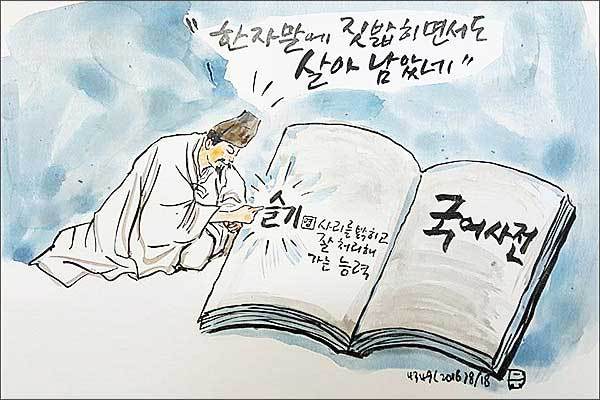 “한자말에 짓밟히면서도
살아 남았네”
슬기
명 사리를 밝히고
잘 처리해
가는 능력
국어사전
4349(2016)8/18